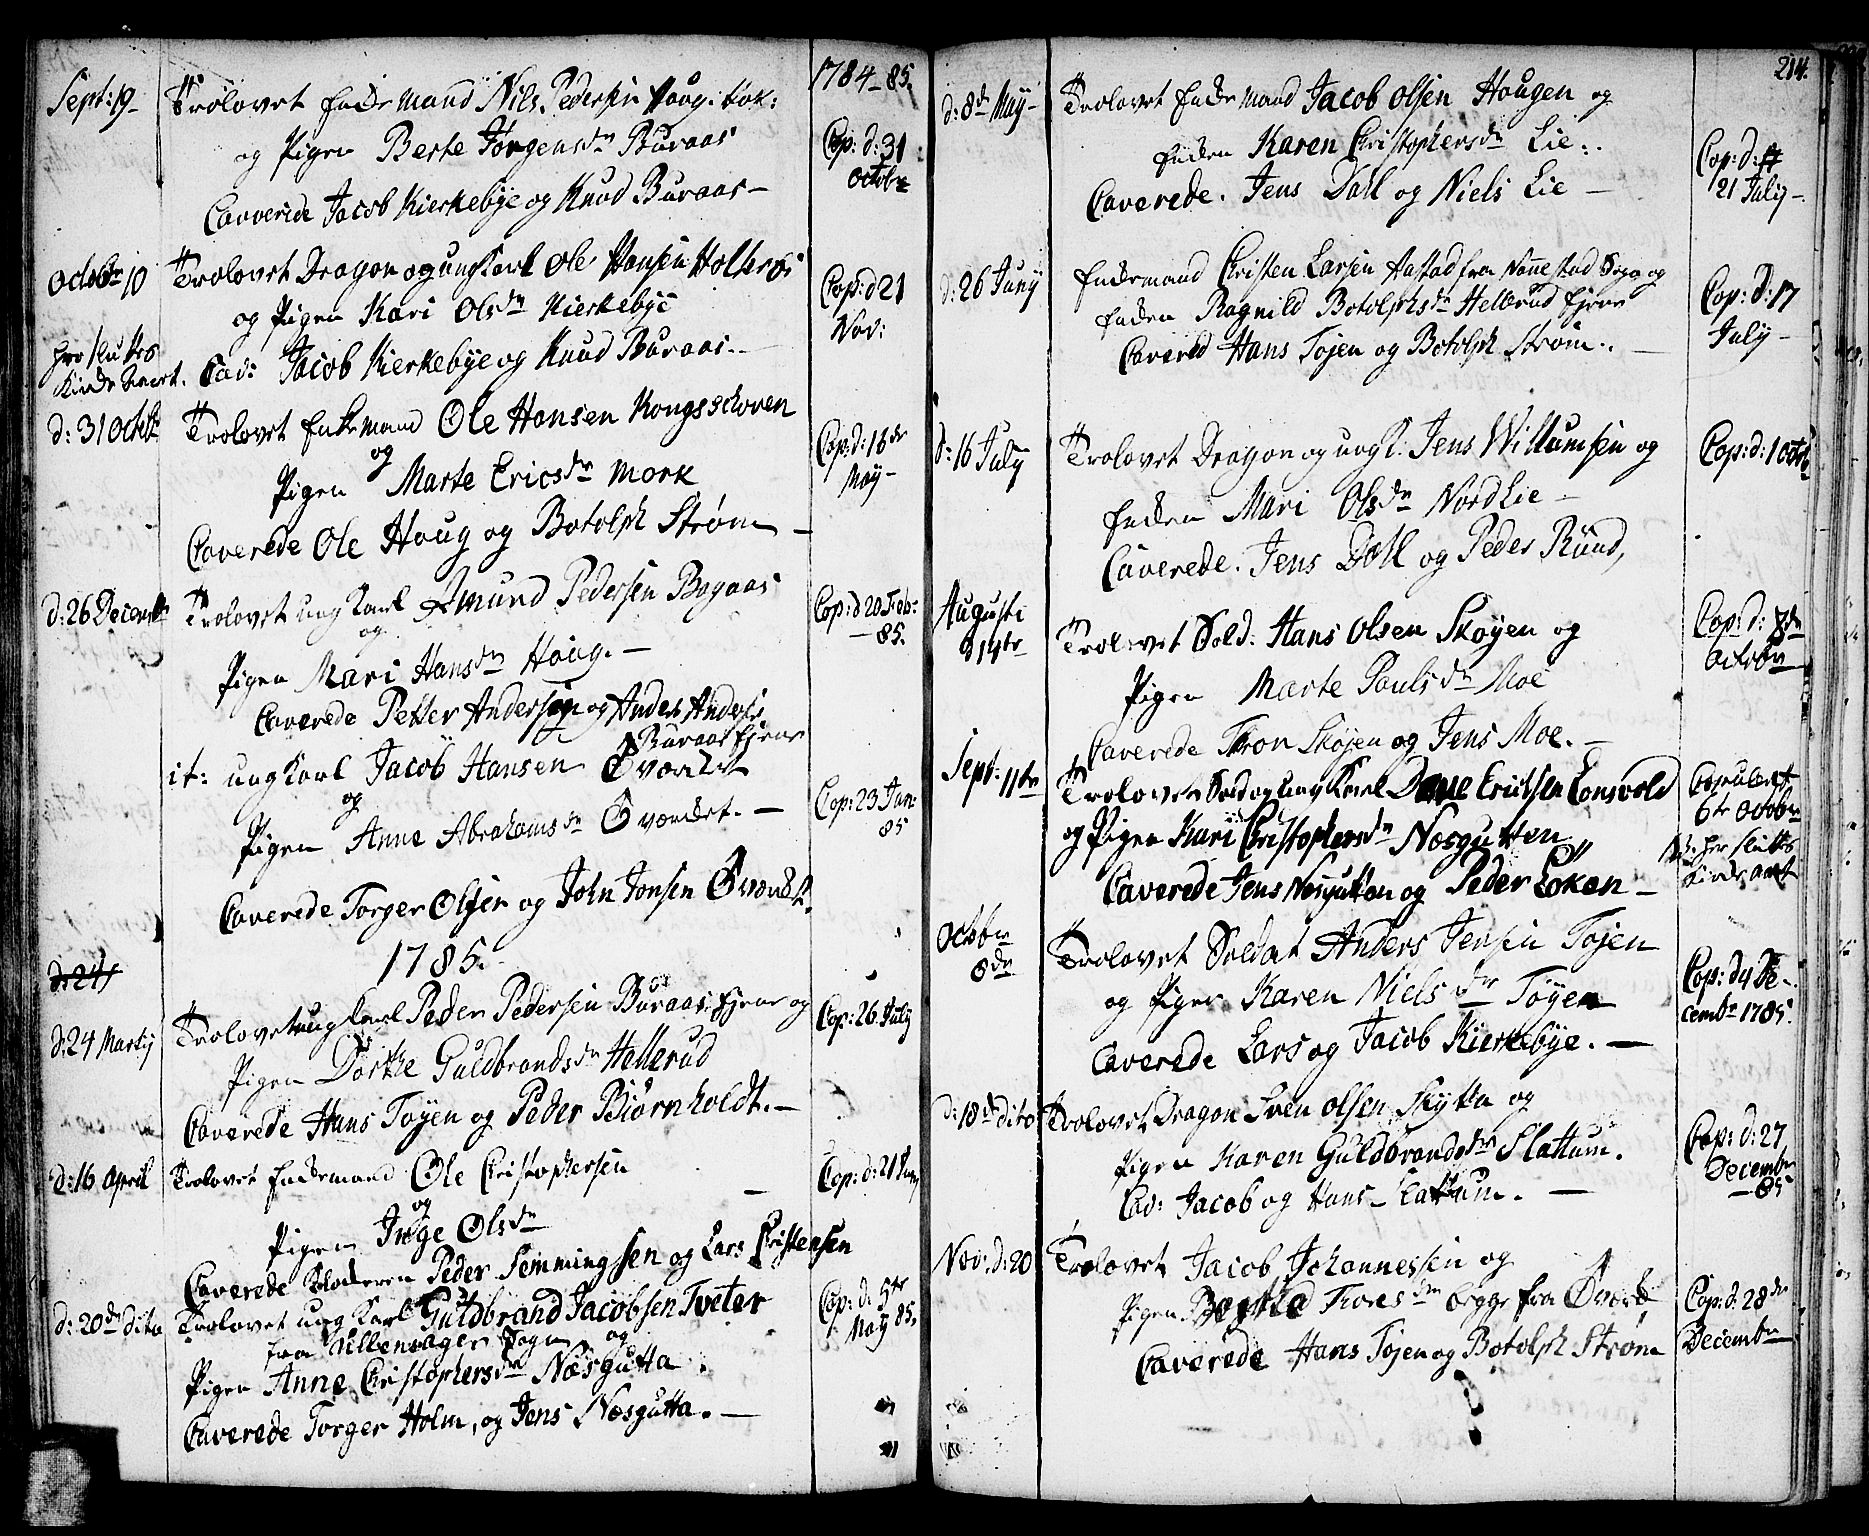 1784-85.
Sept: 19 Trolovet Enkemand Nils Pedersen Houg
og Pigen Berte Jørgensdr Buraas
Caverede Jacob Kierkebye og Knud Buraas
Cop: d: 31 Octobr
Octobr 10 Trolovet Dragon og ungKarl Ole Hansen
og Pigen Kari Olsdr Kierkebye
Cav: Jacob Kierkebye og Knud Buraas.
Cop: d 21 Nov:
her sluttes Kirde Aaret.
d: 31 Octobr Trolovet Enkemand Ole Hansen Kongsschoven
og
Pigen Marte Ericsdr Mork
Caverede Ole Houg og Botolph Strøm
Cop: d: 16de May
d: 26 Decembr Trolovet ungKarl Amund Pedersen Bagaas
og
Pigen Mari Hansdr Haag.
Caverede Petter Andersen og Anders Anders:
Buraas Ejene
Cop: d 20 Feb: 85.
it: ungKarl Jacob Hansen Øværket
og
Pigen Anne Abrahamsdr Øværket.
Caverede Torger Olsen og John Jonsen
Cop: 23 Jan: 85
1785.
d: 24
d: 24 Martij Trolovet ungKarl Peder Pedersen Buraas Ejene og
Pigen Dorthe Guldbrandsdr Hellerud
Caverede Hans Tøyen og Peder Biørnholdt.
Cop: 26 July
d: 16 April Trolovet Enkemand Ole Christophersen
og
Pigen Inge Olsdr
Caverede Peder Semmingsen og Lars Christensen
Cop: d: 21
d: 20de dito Trolovet ungKarl Guldbrand Jacobsen Tveter
fra Ullensager Sogn og
Pigen Anne Christophersdr Næsgutta.
Caverede Torger Holm, og Jens Næsgutta.
Cop: d: 5te May 85.
214.
d: 8de May Trolovet Enkemand Jacob Olsen Hougen og
Enken Karen Christophersdr Lie.
Caverede. Jens Dall og Niels Lie
Cop: d: 21 July
d: 26 Juny Enkemand Christen Larsen Aastad fra Nannestad Sogn og
Enken Ragnild Botolphsdr Helbrud Ejene
Caverede Hans Tøjen og Botolph Strøm.
Cop: d: 17 July
d: 16 July Trolovet Dragon og ungK: Jens Willumsen og
Enken Mari Olsdr NordLie
Caverede. Jens Dall og Peder Rund,
Cop: d: 1 Octob
Augusti d 14te Trolovet Sold: Hans Olsen Skøyen og
Pigen Marte Paulsdr Moe
Caverede Tron Skøjen og Jens Moe.
Cop: d: 8de Octobr
Sept: 11te Trolovet Sold og ungKarl Erichsen Lonsvold
og Pigen Kari Christophersdr Næsgutten
Caverede Jens Nesgutten og Peder Løken
Copuleret 6te Octobr
her sluttes Kirdeaaret
Octobr 8de Trolovet Soldat Anders Jensen Tøjen
og Pigen Karen Nielsdr Tøyen
Caverede Lars og Jacob Kierkebye.
Cop: d 4 Decembr 1785.
d: 18de dito Trolovet Dragon Sven Olsen Skytta og
Pigen Karen Guldbrandsdr Slattum.
Cav: Jacob og Hans Slattum.
Cop: d: 27 Decembr 85
Nov: d: 20 Trolovet Jacob Johannessen og
Pigen begge fra
Caverede Hans Tøjen og Botolph Strøm
Cop: d: 28de Decembr